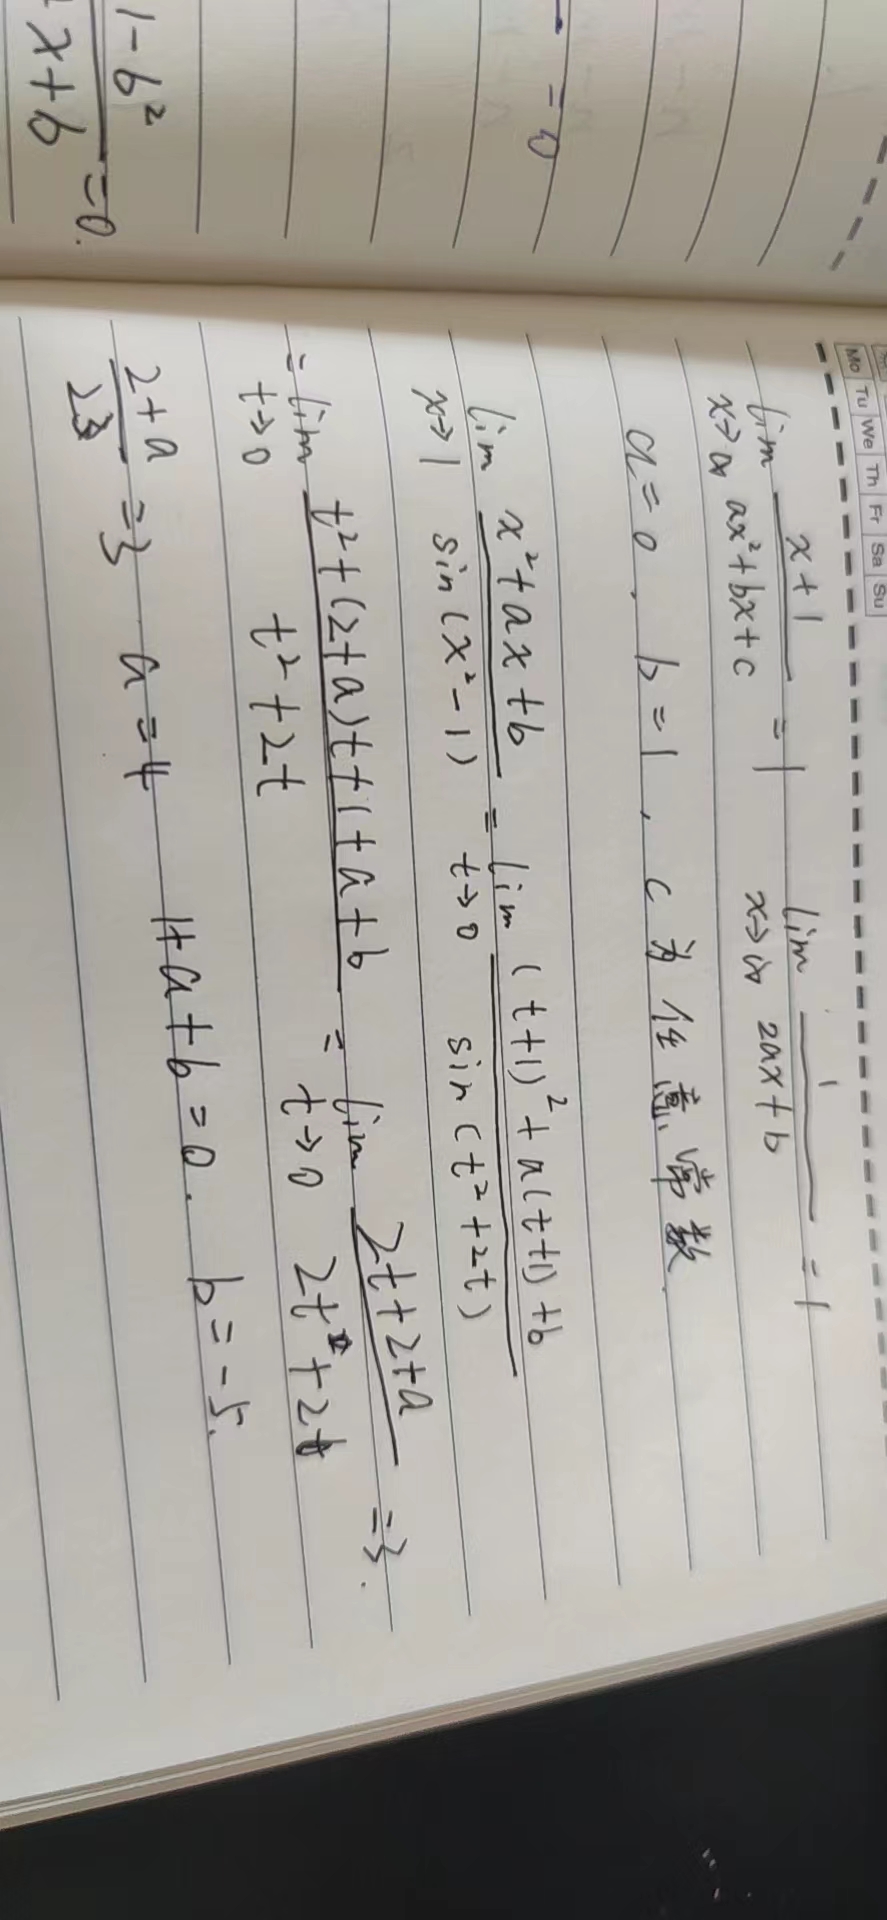 1-b²
x+b =0.
=0
Mo Tu We Th Fr Sa Su
lim x→∞ (x+1)/(ax²+bx+c) =1 lim x→∞ 1/(2ax+b) =1
a=0, b=1, c为任意常数.
lim x→1 (x²+ax+b)/(sin(x²-1)) = lim t→0 ((t+1)²+a(t+1)+b)/(sin(t²+2t))
=lim t→0 (t²+(2+a)t+1+a+b)/(t²+2t) = lim t→0 (2t+2+a)/(2t+2) =3.
(2+a)/2 =3 a=4 1+a+b=0. b=-5.